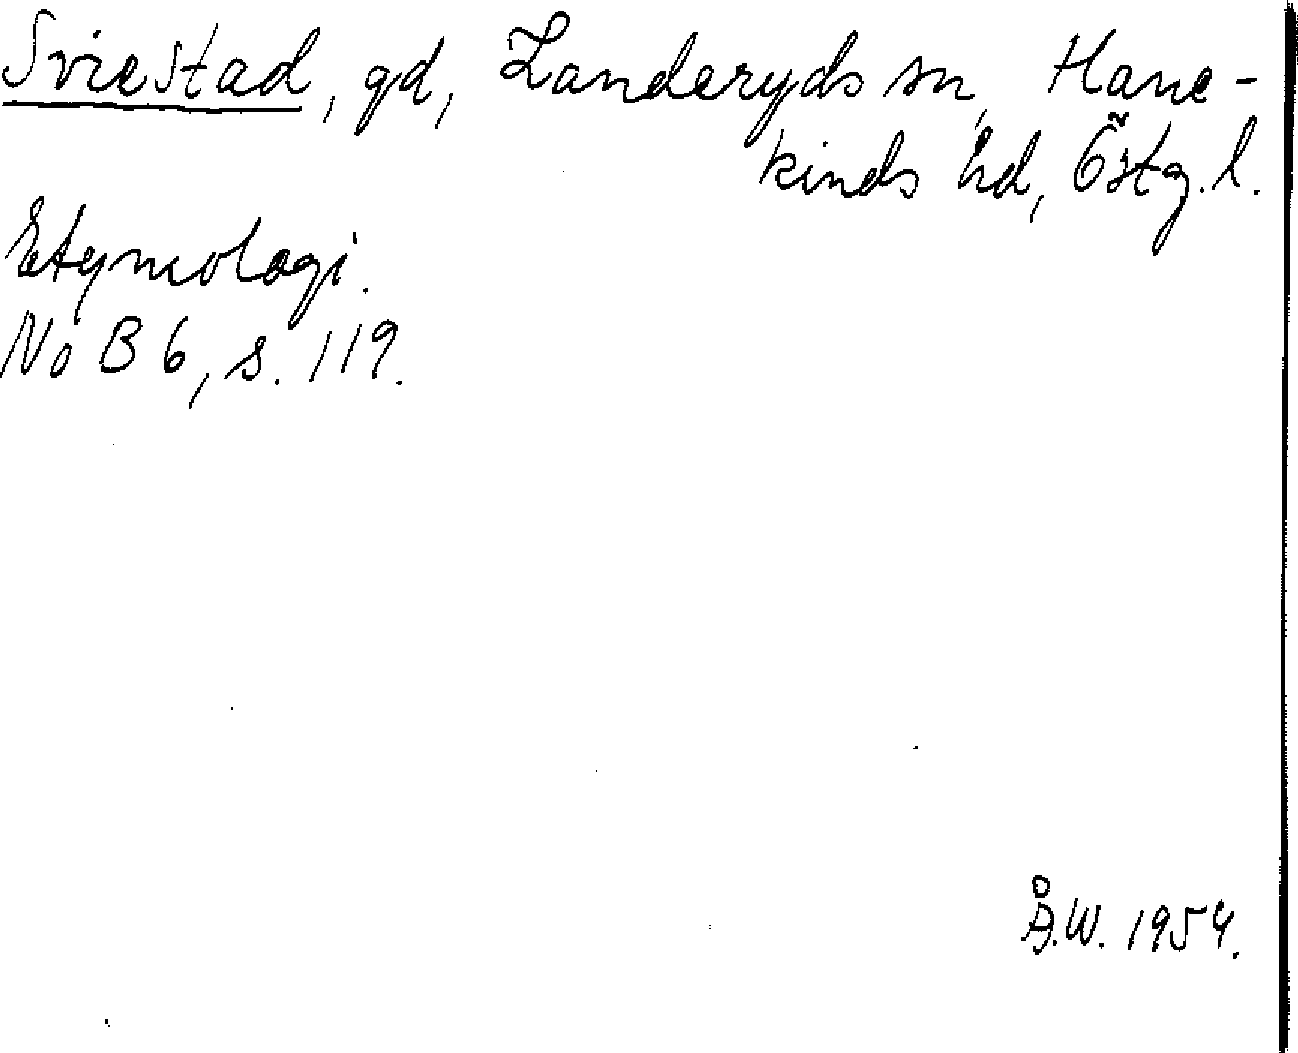 Sviestad, gd, Landeryds sn, Hane-
kinds hd, Östg. l.
Etymologi.
NoB 6, s. 119.
Å.W. 1954.